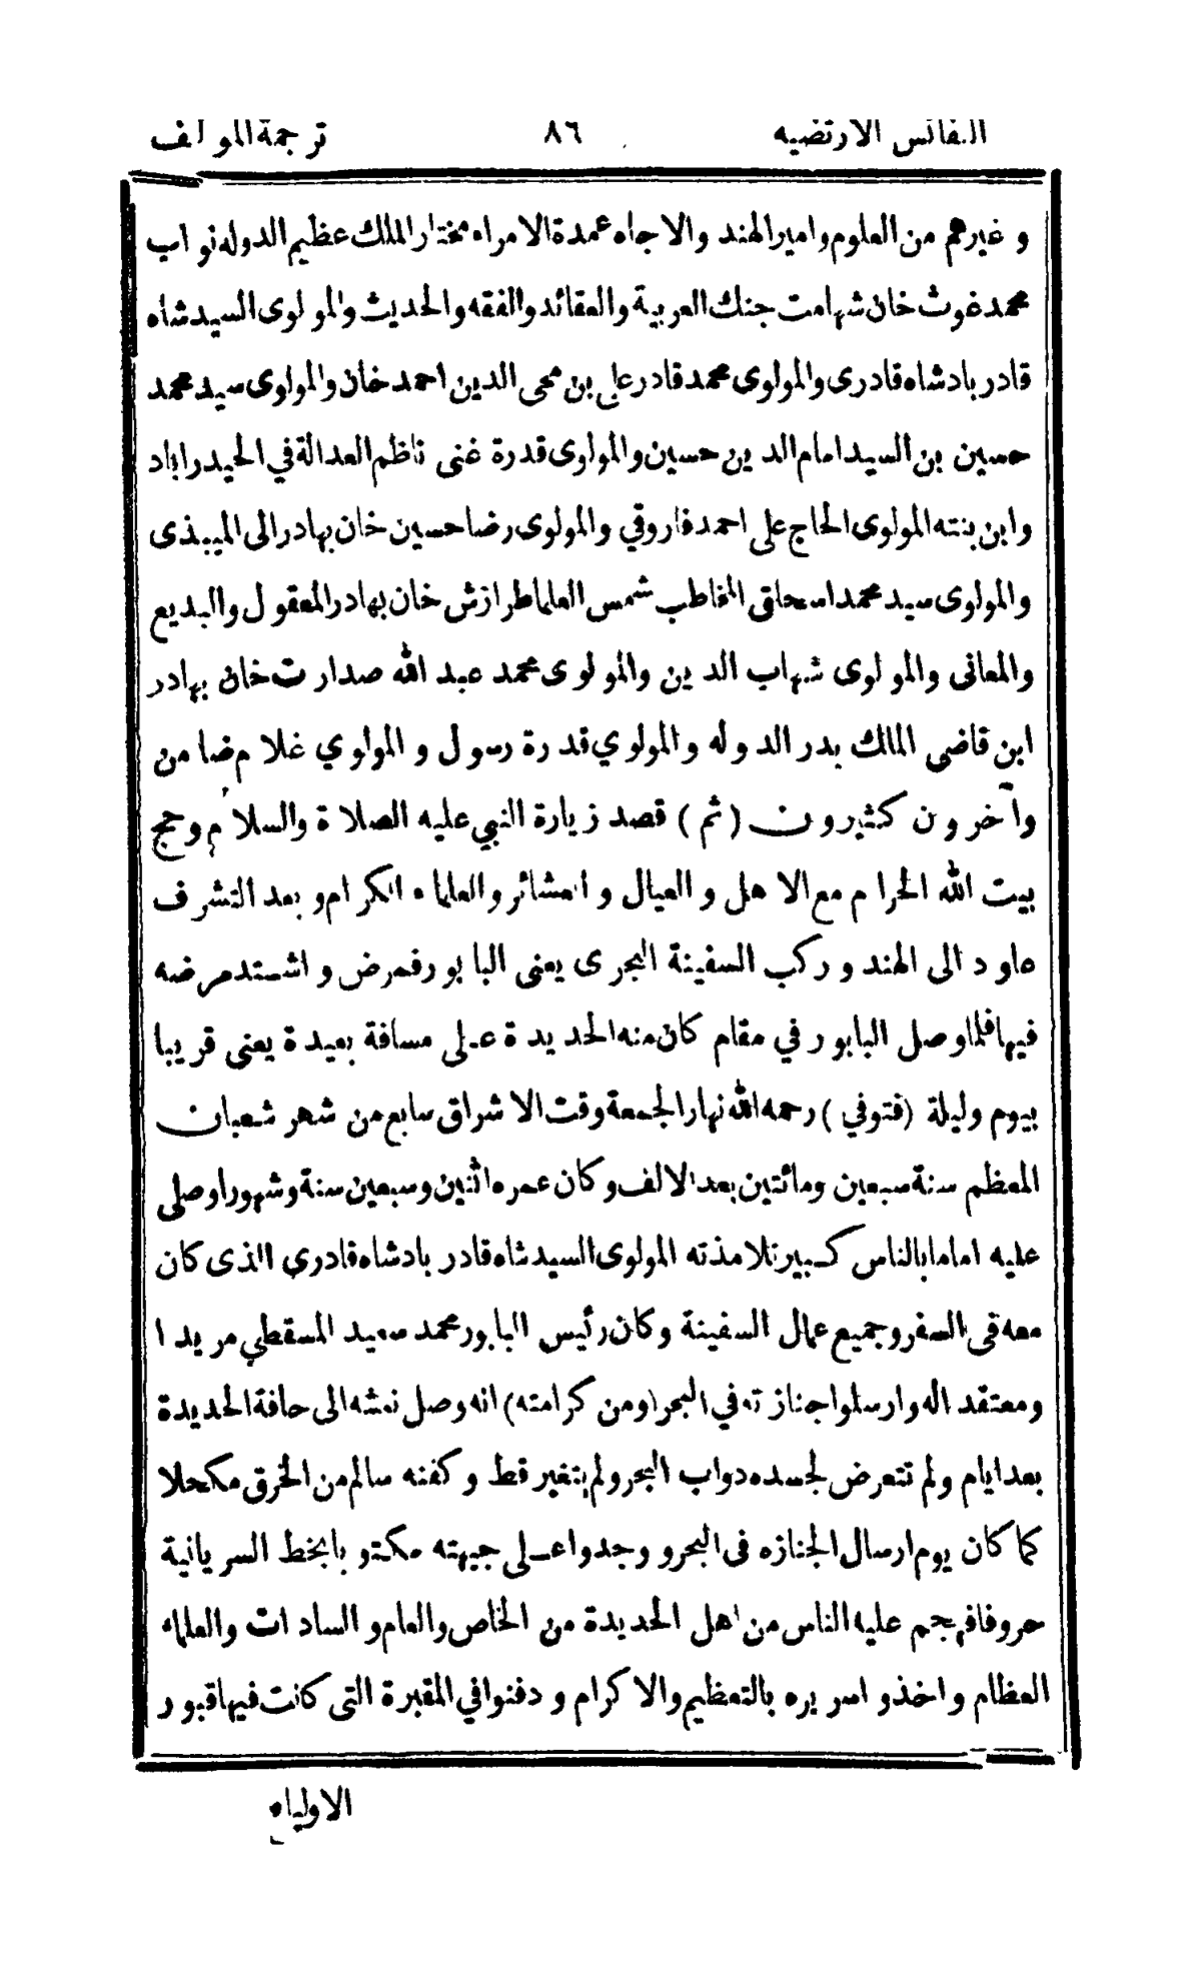 النفائس الارتضيه ٨٦ ترجمة المولف
و غيرهم من العلوم وامير الهند والاجاه عمدة الامراء مختار الملك عظيم الدوله نواب
محمد غوث خان شهامت جنك العربية والعقائد والفقه والحديث والمولوى السيد شاه
قادر بادشاه قادرى والمولوى محمد قادر على بن محى الدين احمد خان والمولوى سيد محمد
حسين بن السيد امام الدين حسين والمولوى قدرة غنى ناظم العدالة في الحيدراباد
وابن بنته المولوى الحاج على احمد فاروقي والمولوى رضا حسين خان بهادر الى الميبذى
والمولوى سيد محمد اسحاق المخاطب شمس العلما طرازش خان بهادر المعقول والبديع
والمعانى والمولوى شهاب الدين والمولوى محمد عبد الله صدارت خان بهادر
ابن قاضى الملك بدر الدوله والمولوي قدرة رسول و المولوي غلام ضامن
وآخرون كثيرون (ثم) قصد زيارة النبي عليه الصلاة والسلام وحج
بيت الله الحرام مع الاهل و العيال و العشائر والعلماء الكرام و بعد التشرف
عاود الى الهند و ركب السفينة البحرى يعنى البابور فمرض و اشتد مرضه
فيها فلما وصل البابور في مقام كان منه الحديدة على مسافة بعيدة يعنى قريبا
بيوم وليلة (فتوفي) رحمه الله نهار الجمعة وقت الاشراق سابع من شهر شعبان
المعظم سنة سبعين ومائتين بعد الالف وكان عمره اثنين وسبعين سنة وشهورا وصلى
عليه اماما بالناس كبير تلامذته المولوى السيد شاه قادر بادشاه قادري الذى كان
معه فى السفر وجميع عمال السفينة وكان رئيس البابور محمد سعيد المسقطي مريدا
ومعتقد اله وارسلوا جنازته في البحر (ومن كرامته) انه وصل نعشه الى حافة الحديدة
بعد ايام ولم تتعرض لجسده دواب البحر ولم يتغير قط و كفنه سالم من الخرق مكحلا
كما كان يوم ارسال الجنازه فى البحر و وجدوا على جبهته مكتوبا بخط السريانية
حروفا فهجم عليه الناس من اهل الحديدة من الخاص والعام و السادات والعلماء
العظام و اخذوا سريره بالتعظيم والاكرام و دفنوا في المقبرة التى كانت فيها قبور
الاولياء